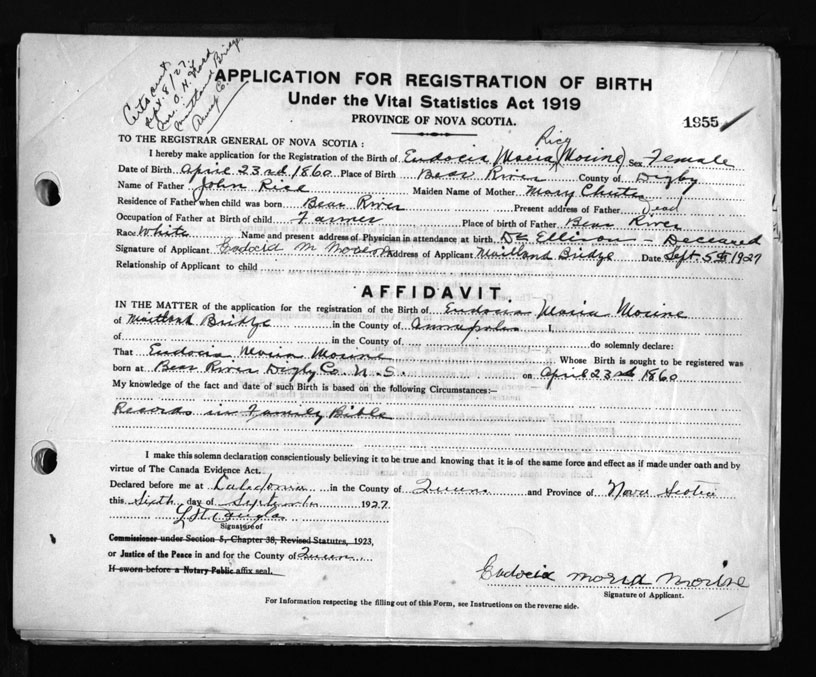 Sept. 8/27
APPLICATION FOR REGISTRATION OF BIRTH
Under the Vital Statistics Act 1919
PROVINCE OF NOVA SCOTIA.
1855
TO THE REGISTRAR GENERAL OF NOVA SCOTIA:
Rice
I hereby make application for the Registration of the Birth of Eudocia Maria (Morine) Sex Female
Date of Birth April 23rd 1860 Place of Birth Bear River County of Digby
Name of Father John Rice Maiden Name of Mother Mary Chute
Residence of Father when child was born Bear River Present address of Father Dead
Occupation of Father at Birth of child Farmer Place of birth of Father Bear River
Race White Name and present address of Physician in attendance at birth Dr Ellison - Deceased
Signature of Applicant Eudocia M Morine Address of Applicant Maitland Bridge Date Sept. 5th 1927
Relationship of Applicant to child
AFFIDAVIT.
IN THE MATTER of the application for the registration of the Birth of Eudocia Maria Morine
of Maitland Bridge in the County of Annapolis I,
of in the County of do solemnly declare:
That Eudocia Maria Morine Whose Birth is sought to be registered was
born at Bear River Digby Co. N.S. on April 23rd 1860
My knowledge of the fact and date of such Birth is based on the following Circumstances:—
Records in Family Bible
I make this solemn declaration conscientiously believing it to be true and knowing that it is of the same force and effect as if made under oath and by
virtue of The Canada Evidence Act.
Declared before me at Caledonia in the County of Queens and Province of Nova Scotia
this Sixth day of September 1927
Signature of
Commissioner under Section 5, Chapter 38, Revised Statutes, 1923,
or Justice of the Peace in and for the County of Queens
If sworn before a Notary Public affix seal.
Eudocia Maria Morine
Signature of Applicant.
For Information respecting the filling out of this Form, see Instructions on the reverse side.